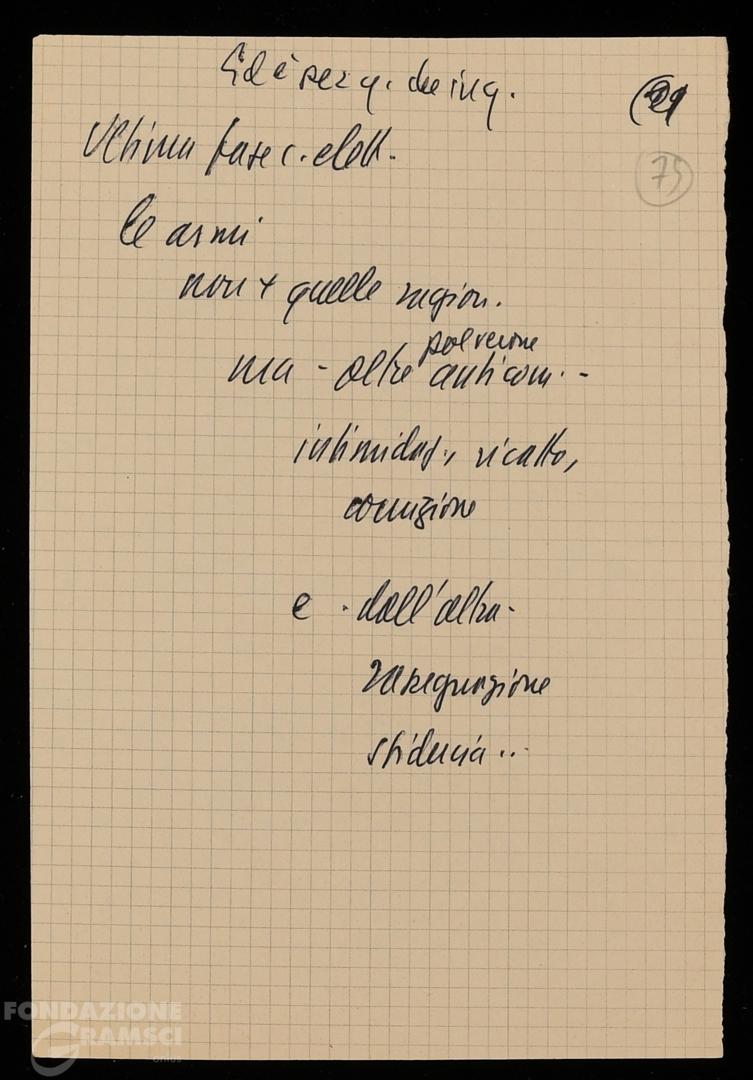 Ed è per q. che in q.
Ultima fase c. elett.
75
le armi
non + quelle ragion.
polverone
ma - oltre anticom. -
intimidaz., ricatto,
corruzione
e - dall'altra -
rassegnazione
sfiducia ...
FONDAZIONE
GRAMSCI
onlus